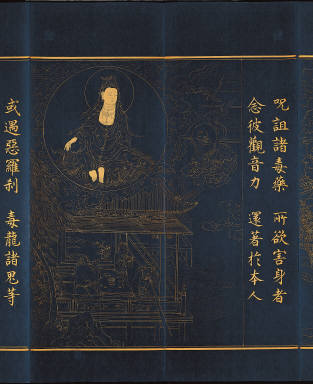 呪詛諸毒藥　所欲害身者
念彼觀音力　還著於本人
或遇惡羅刹　毒龍諸鬼等